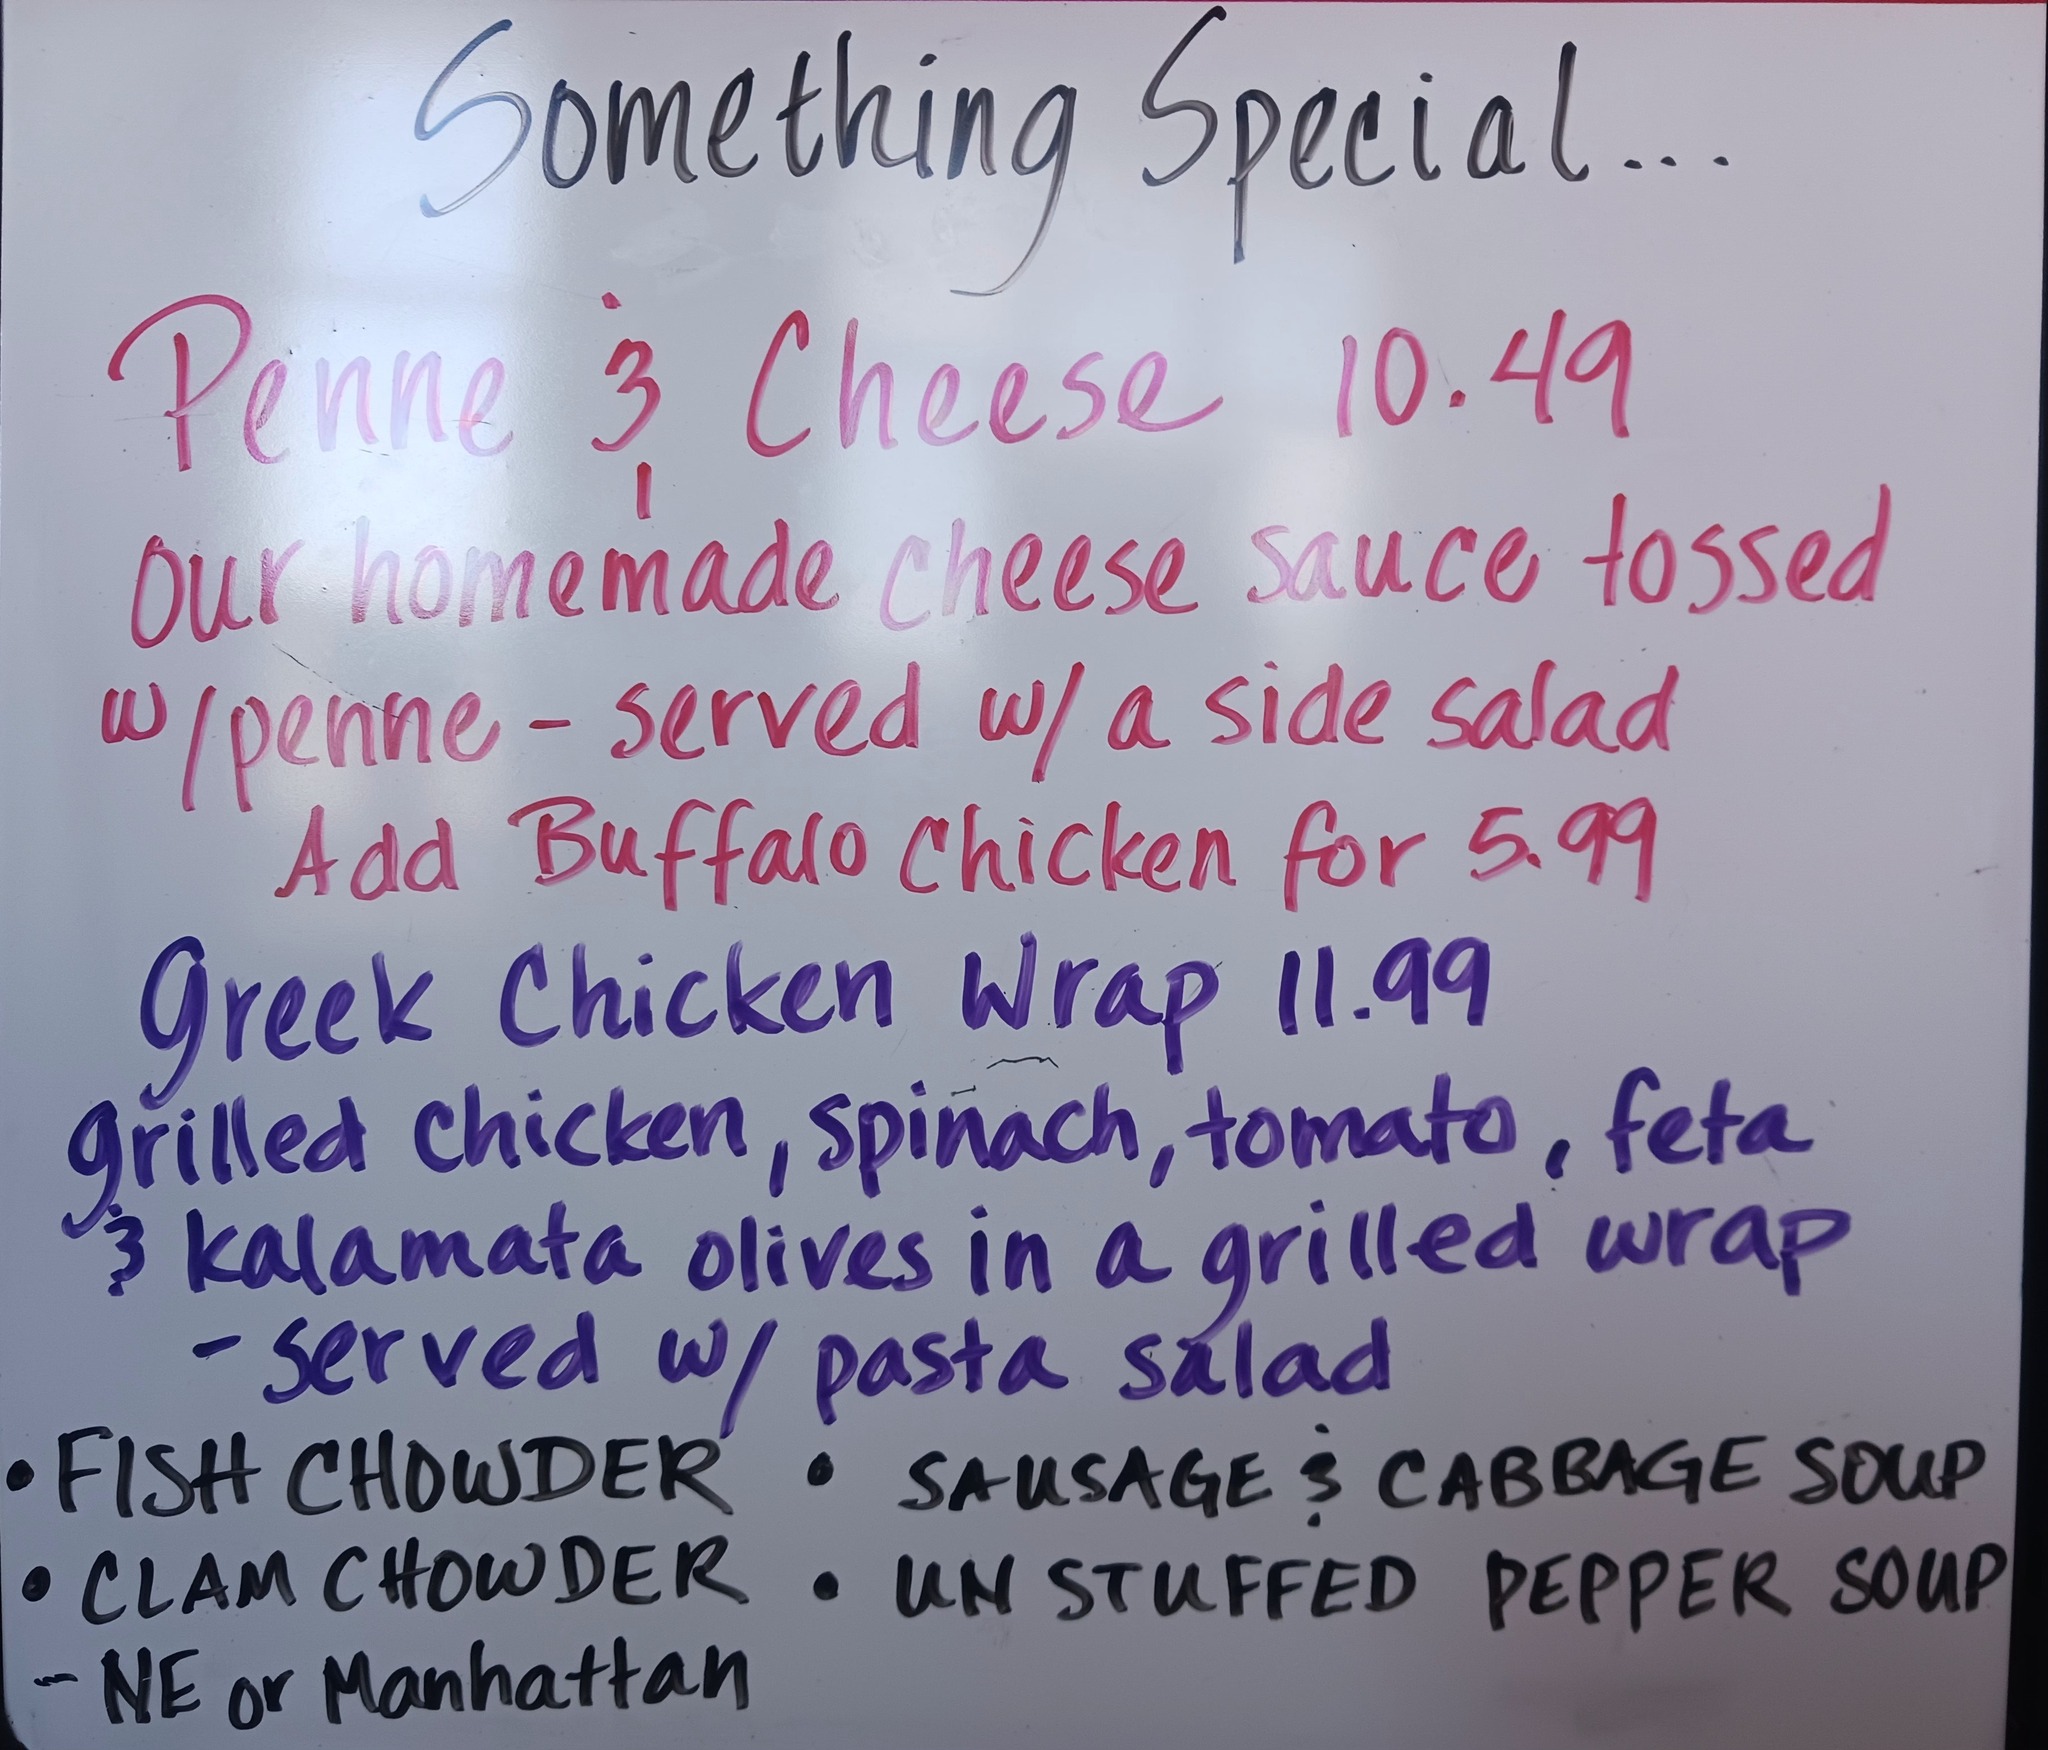 Something Special...
Penne & Cheese 10.49
our homemade cheese sauce tossed
w/penne - served w/ a side salad
Add Buffalo Chicken for 5.99
Greek Chicken Wrap 11.99
grilled chicken, spinach, tomato, feta
& kalamata olives in a grilled wrap
- served w/ pasta salad
• FISH CHOWDER • SAUSAGE & CABBAGE SOUP
• CLAM CHOWDER • UN STUFFED PEPPER SOUP
- NE or Manhattan